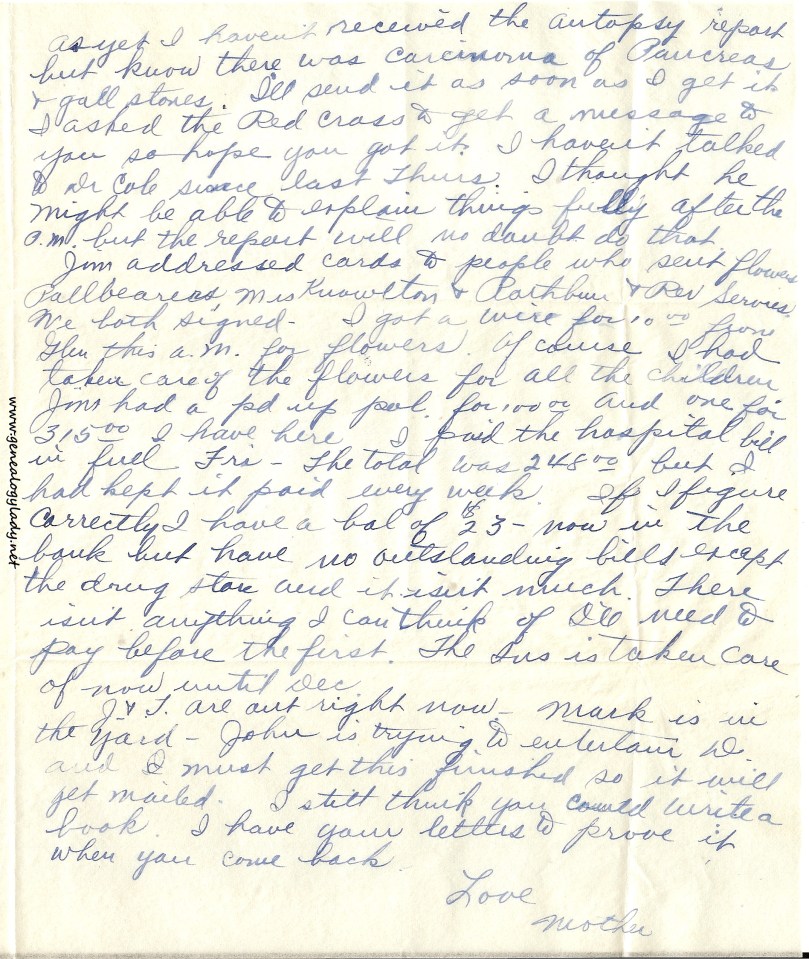 As yet I haven't received the autopsy report
but know there was carcinoma of Pancreas
& gall stones. I'll send it as soon as I get it
I asked the Red Cross to get a message to
you so hope you got it. I haven't talked
to Dr Cole since last Thurs. I thought he
might be able to explain things fully after the
P.M. but the report will no doubt do that.
Jim addressed cards to people who sent flowers
Pallbearers Mrs Knowlton & Rathbun & Rev Servies.
We both signed - I got a wire for 10 00 from
Glen this a.m. for flowers. Of course I had
taken care of the flowers for all the children
Jim had a pd up pol. for 100 00 and one for
315 00 I have here I paid the hospital bill
in full Fri - The total was 248 00 but I
had kept it paid every week. If I figure
correctly I have a bal of $23 - now in the
bank but have no outstanding bills except
the drug store and it isn't much. There
isn't anything I can think of I'll need to
pay before the first. The Ins is taken care
of now until Dec
J & T. are out right now - Mark is in
the yard - John is trying to entertain D.
and I must get this finished so it will
get mailed. I still think you could write a
book. I have your letters to prove it
when you come back.
Love
Mother
www.genealogylady.net